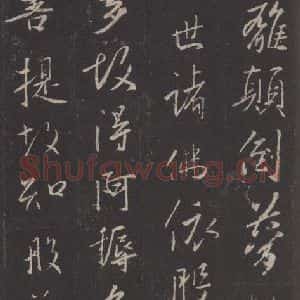 離顛倒夢
世諸佛依般
多故得阿耨
菩提故知般
Shufawang.CN